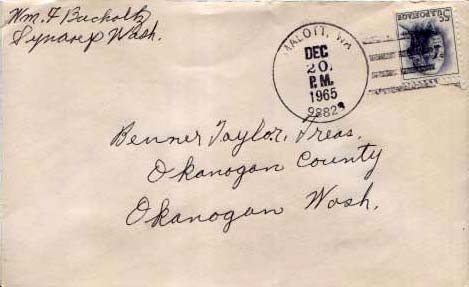 Wm. F Bucholtz
Synarep Wash.
MALOTT, WA
DEC
20
P.M.
1965
98829
5c
U.S. POSTAGE
Benner Taylor, Treas.
Okanogan County
Okanogan Wash.